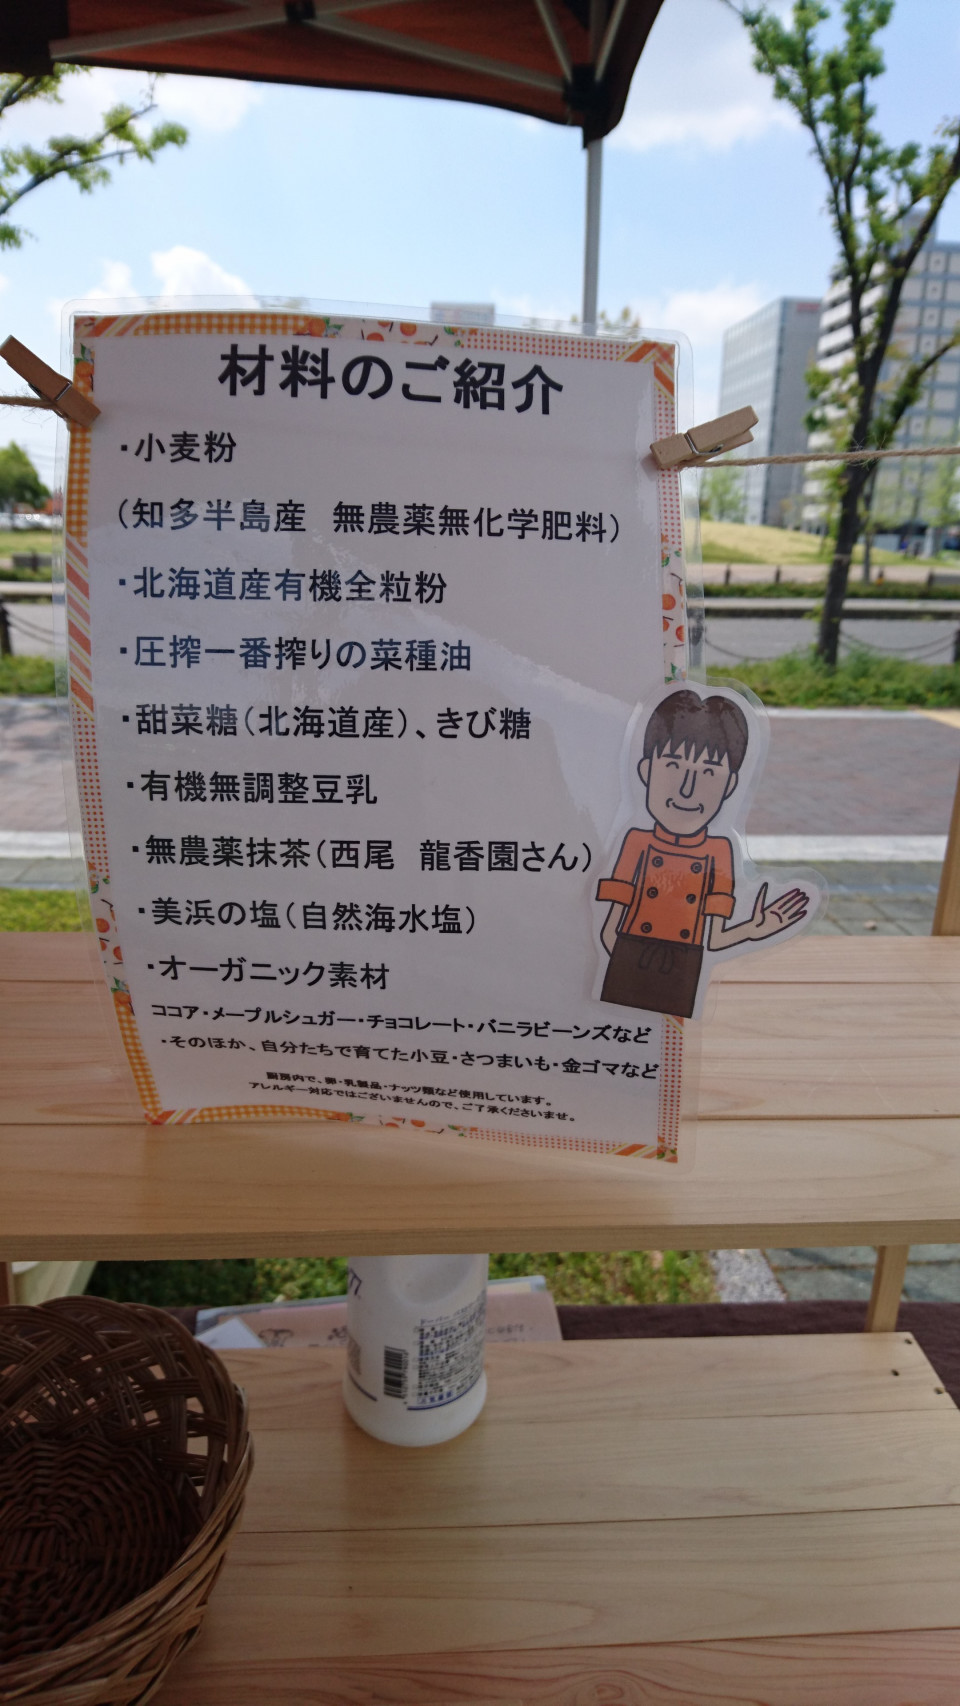 材料のご紹介
・小麦粉
（知多半島産　無農薬無化学肥料）
・北海道産有機全粒粉
・圧搾一番搾りの菜種油
・甜菜糖（北海道産）、きび糖
・有機無調整豆乳
・無農薬抹茶（西尾　龍香園さん）
・美浜の塩（自然海水塩）
・オーガニック素材
ココア・メープルシュガー・チョコレート・バニラビーンズなど
・そのほか、自分たちで育てた小豆・さつまいも・金ゴマなど
厨房内で、卵・乳製品・ナッツ類など使用しています。
アレルギー対応ではございませんので、ご了承くださいませ。
77